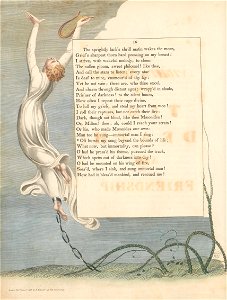 16
The sprightly lark's shrill matin wakes the morn;
Grief's sharpest thorn hard pressing on my breast,
I strive, with wakeful melody, to cheer
The sullen gloom, sweet philomel! like thee,
And call the stars to listen: every star
Is deaf to mine, enamour'd of thy lay:
Yet be not vain; there are, who thine excel,
And charm through distant ages: wrapp'd in shade,
Pris'ner of darkness! to the silent hours,
How often I repeat their rage divine,
To lull my griefs, and steal my heart from woe!
I roll their raptures, but not catch their fire:
Dark, though not blind, like thee Mæonides!
Or, Milton! thee; ah, could I reach your strain!
Or his, who made Mæonides our own:
Man too he sung—immortal man I sing:
* Oft bursts my song beyond the bounds of life;
What now, but immortality, can please?
O had he press'd his theme, pursued the track,
Which opens out of darkness into day!
O had he mounted on his wing of fire,
Soar'd, where I sink, and sung immortal man!
How had it bless'd mankind, and rescued me!